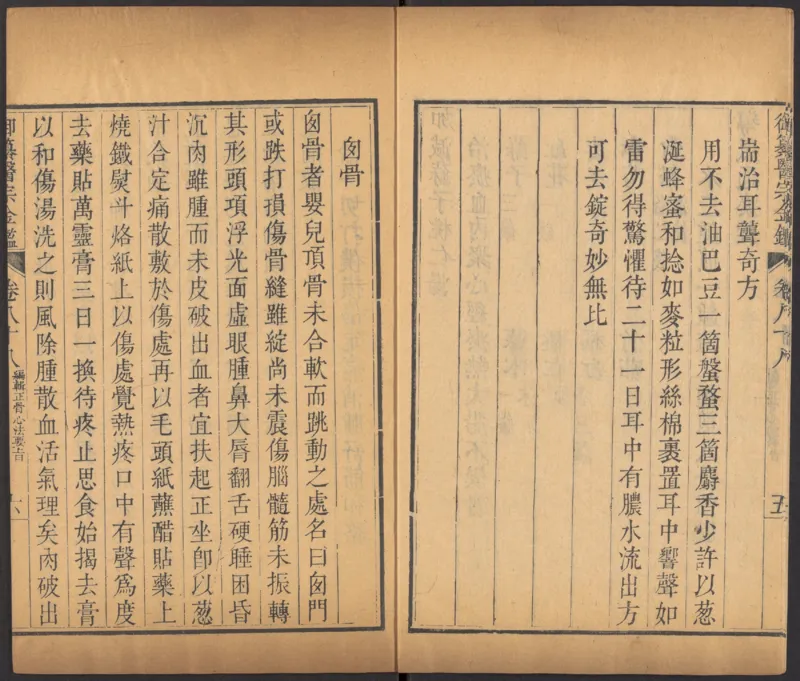 御纂醫宗金鑑 卷八十八 五
耑治耳聾奇方
用不去油巴豆一箇螌蝥三箇麝香少許以葱
涎蜂蜜和捻如麥粒形絲棉裹置耳中響聲如
雷勿得驚懼待二十一日耳中有膿水流出方
可去錠奇妙無比
囟骨
囟骨者嬰兒頂骨未合軟而跳動之處名曰囟門
或跌打損傷骨縫雖綻尚未震傷腦髓筋未振轉
其形頭項浮光面虛眼腫鼻大唇翻舌硬睡困昏
沉肉雖腫而未皮破出血者宜扶起正坐卽以葱
汁合定痛散敷於傷處再以毛頭紙蘸醋貼藥上
燒鐵熨斗烙紙上以傷處覺熱疼口中有聲爲度
去藥貼萬靈膏三日一換待疼止思食始揭去膏
以和傷湯洗之則風除腫散血活氣理矣內破出
御纂醫宗金鑑 卷八十八 編輯正骨心法要旨 六